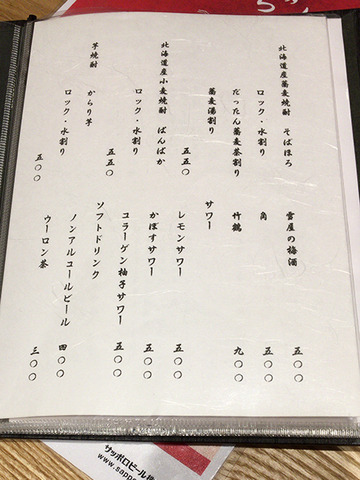 北海道産蕎麦焼酎 そばほろ
ロック・水割り
だったん蕎麦茶割り
蕎麦湯割り
五五〇
北海道産小麦焼酎 ばんばか
ロック・水割り
五五〇
芋焼酎 からり芋
ロック・水割り
五〇〇
雪屋の梅酒 五〇〇
角 五〇〇
竹鶴 九〇〇
サワー
レモンサワー 五〇〇
かぼすサワー 五〇〇
コラーゲン柚子サワー 五〇〇
ソフトドリンク
ノンアルコールビール 四〇〇
ウーロン茶 三〇〇
サッポロビール
www.sapp